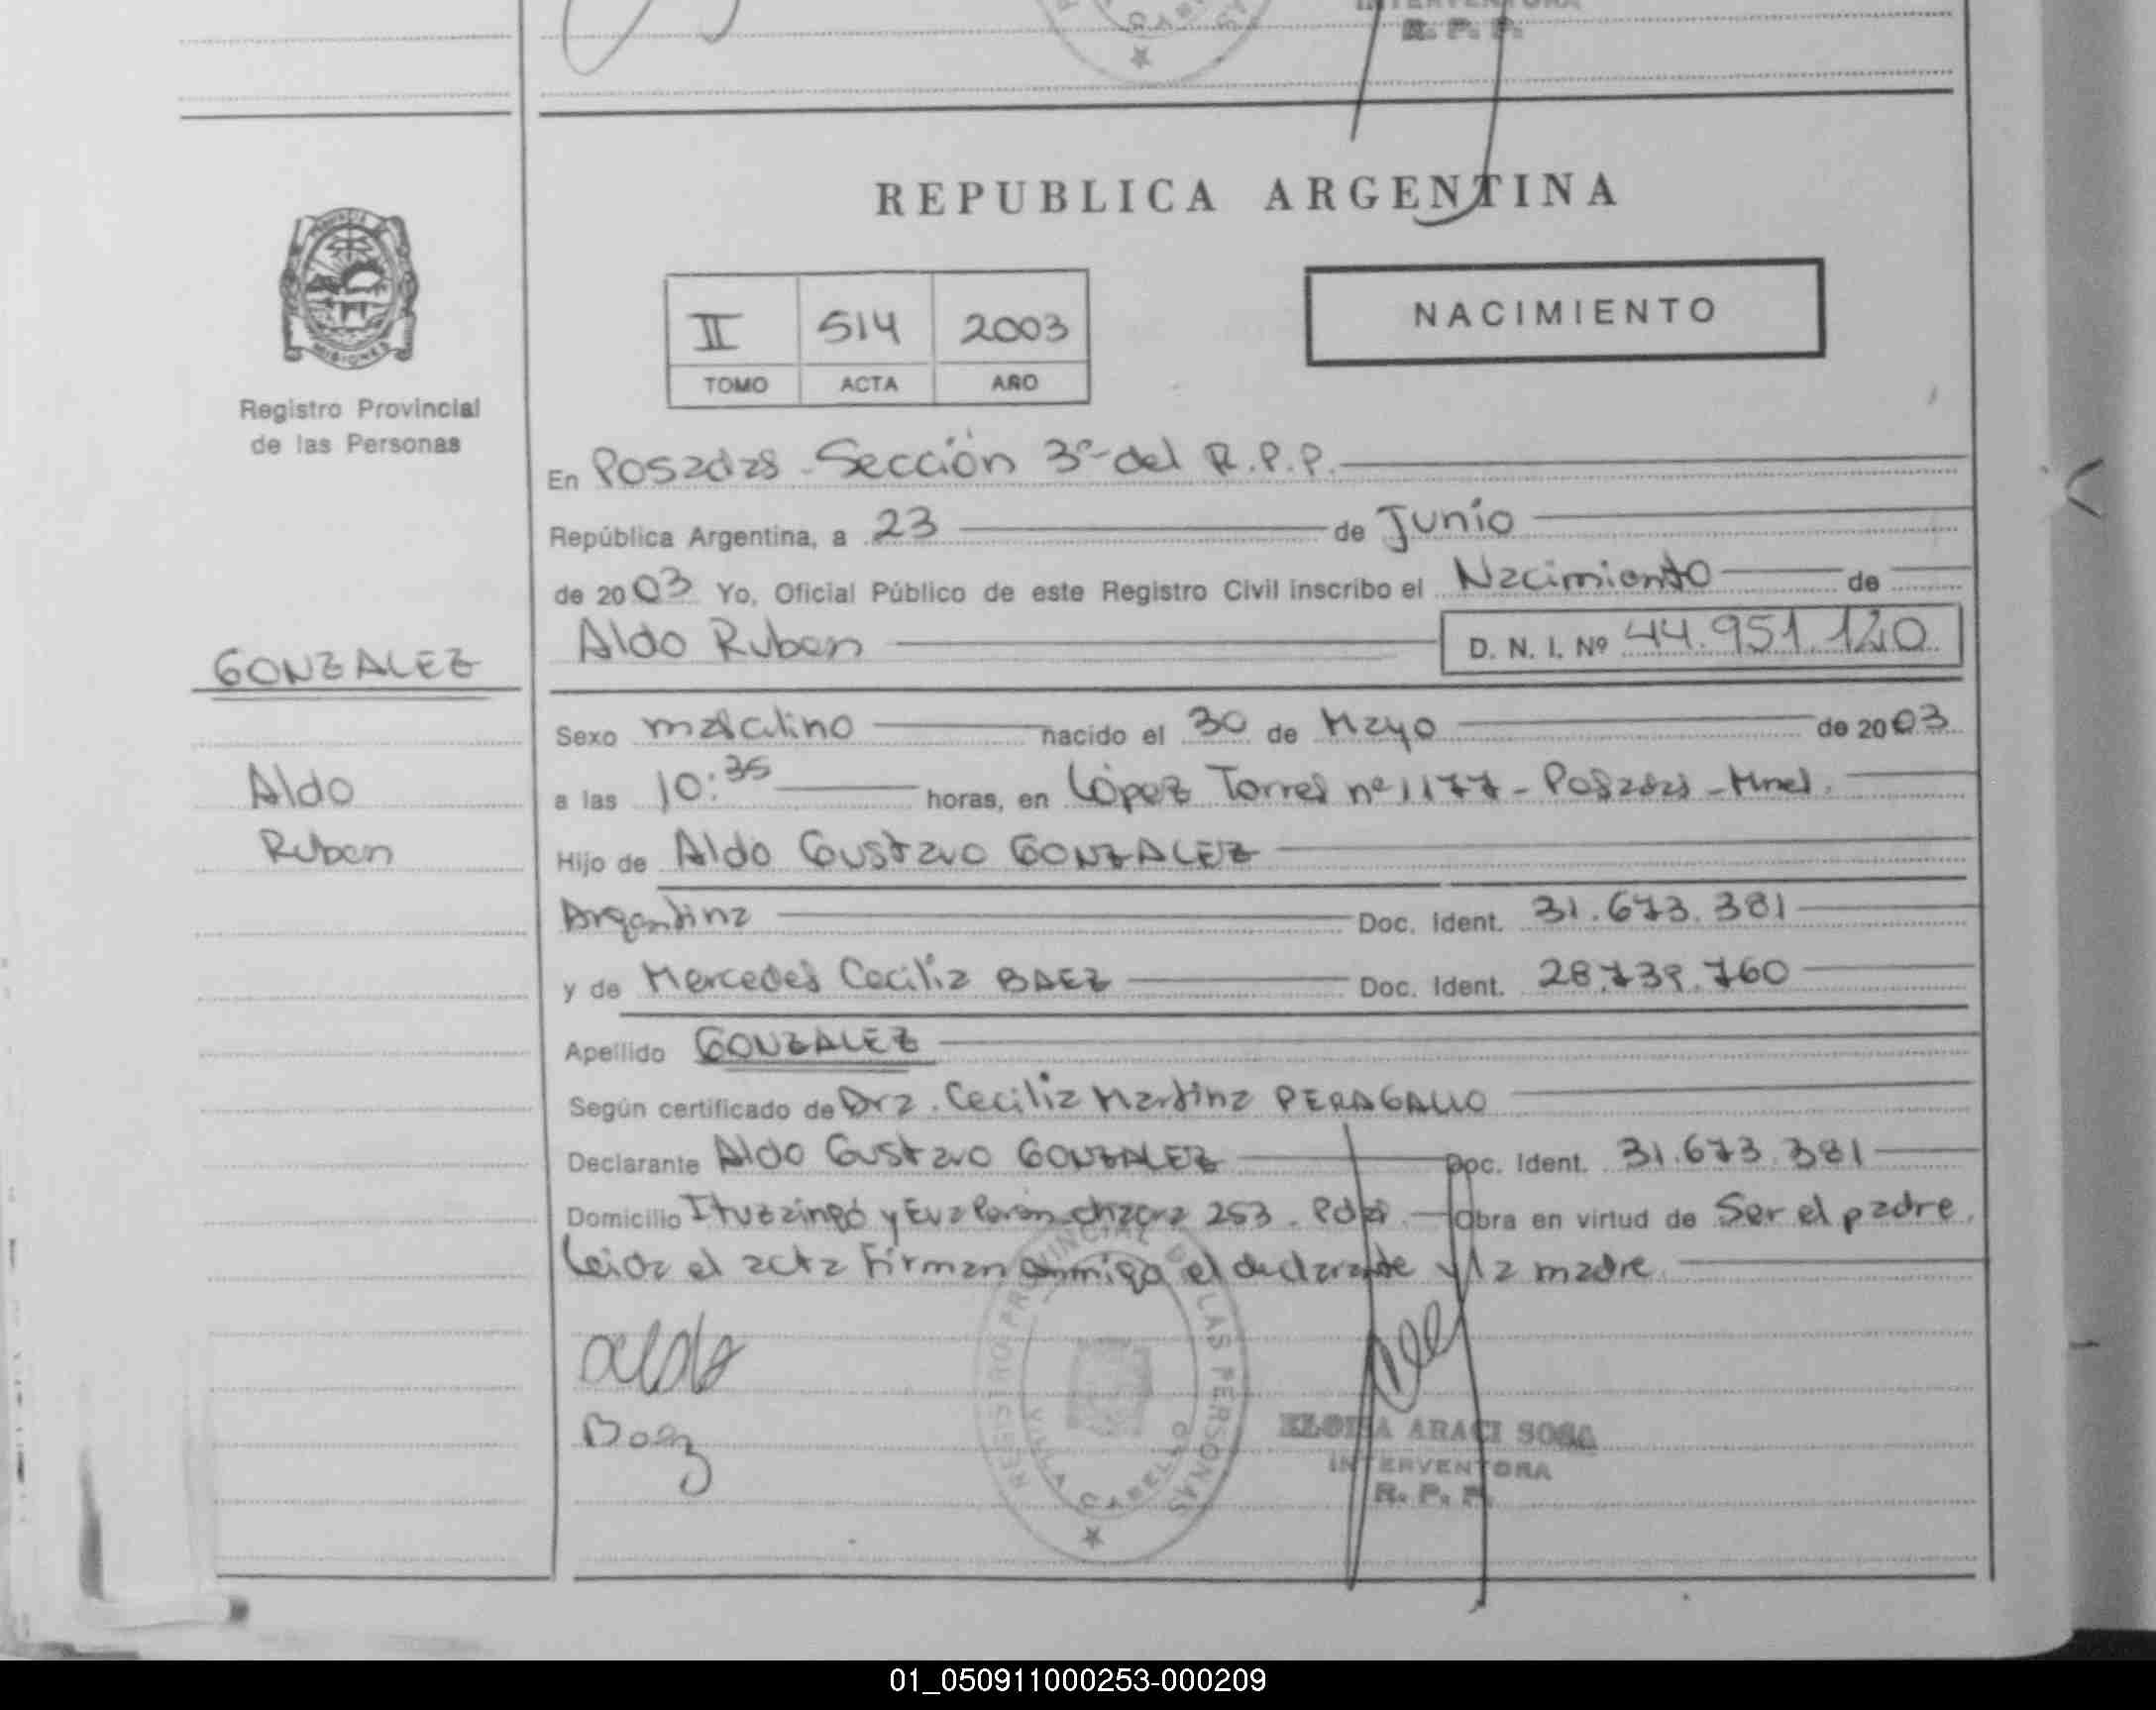 INTERVENTORA
R. P. P.
REPUBLICA ARGENTINA
MISIONES
Registro Provincial
de las Personas
II 514 2003
TOMO ACTA AÑO
NACIMIENTO
En Posadas - Sección 3ª del R.P.P.
República Argentina, a 23 de Junio
de 2003 Yo, Oficial Público de este Registro Civil inscribo el Nacimiento de
Aldo Ruben D. N. I. Nº 44.951.120
GONZALEZ
Aldo
Ruben
Sexo masculino nacido el 30 de Mayo de 2003
a las 10:35 horas, en López Torres nº 1177 - Posadas - Mnes.
Hijo de Aldo Gustavo GONZALEZ
Argentina Doc. Ident. 31.673.381
y de Mercedes Cecilia BAEZ Doc. Ident. 28.739.760
Apellido GONZALEZ
Según certificado de Dra. Cecilia Martina PERAGALLO
Declarante Aldo Gustavo GONZALEZ Doc. Ident. 31.673.381
Domicilio Ituzaingó y Eva Peron chacra 253. Obra en virtud de Ser el padre.
Leida el acta Firman conmigo el declarante y la madre.
aldo
Baez
REGISTRO PROVINCIAL DE LAS PERSONAS
VILLA CABELLO
ELOISA ARACI SOSA
INTERVENTORA
R. P. P.
01_050911000253-000209